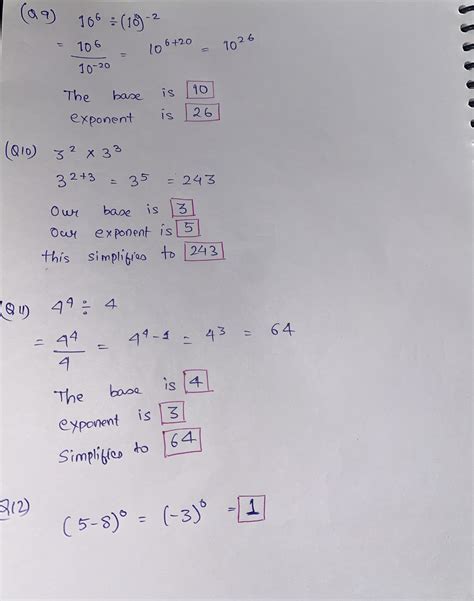 (Q9) 10⁶ ÷ (10)⁻²
= 10⁶/10⁻²⁰ = 10⁶⁺²⁰ = 10²⁶
The base is 10
exponent is 26
(Q10) 3² × 3³
3²⁺³ = 3⁵ = 243
Our base is 3
Our exponent is 5
this simplifies to 243
(Q11) 4⁴ ÷ 4
= 4⁴/4 = 4⁴⁻¹ = 4³ = 64
The base is 4
exponent is 3
Simplifies to 64
Q12) (5-8)⁰ = (-3)⁰ = 1